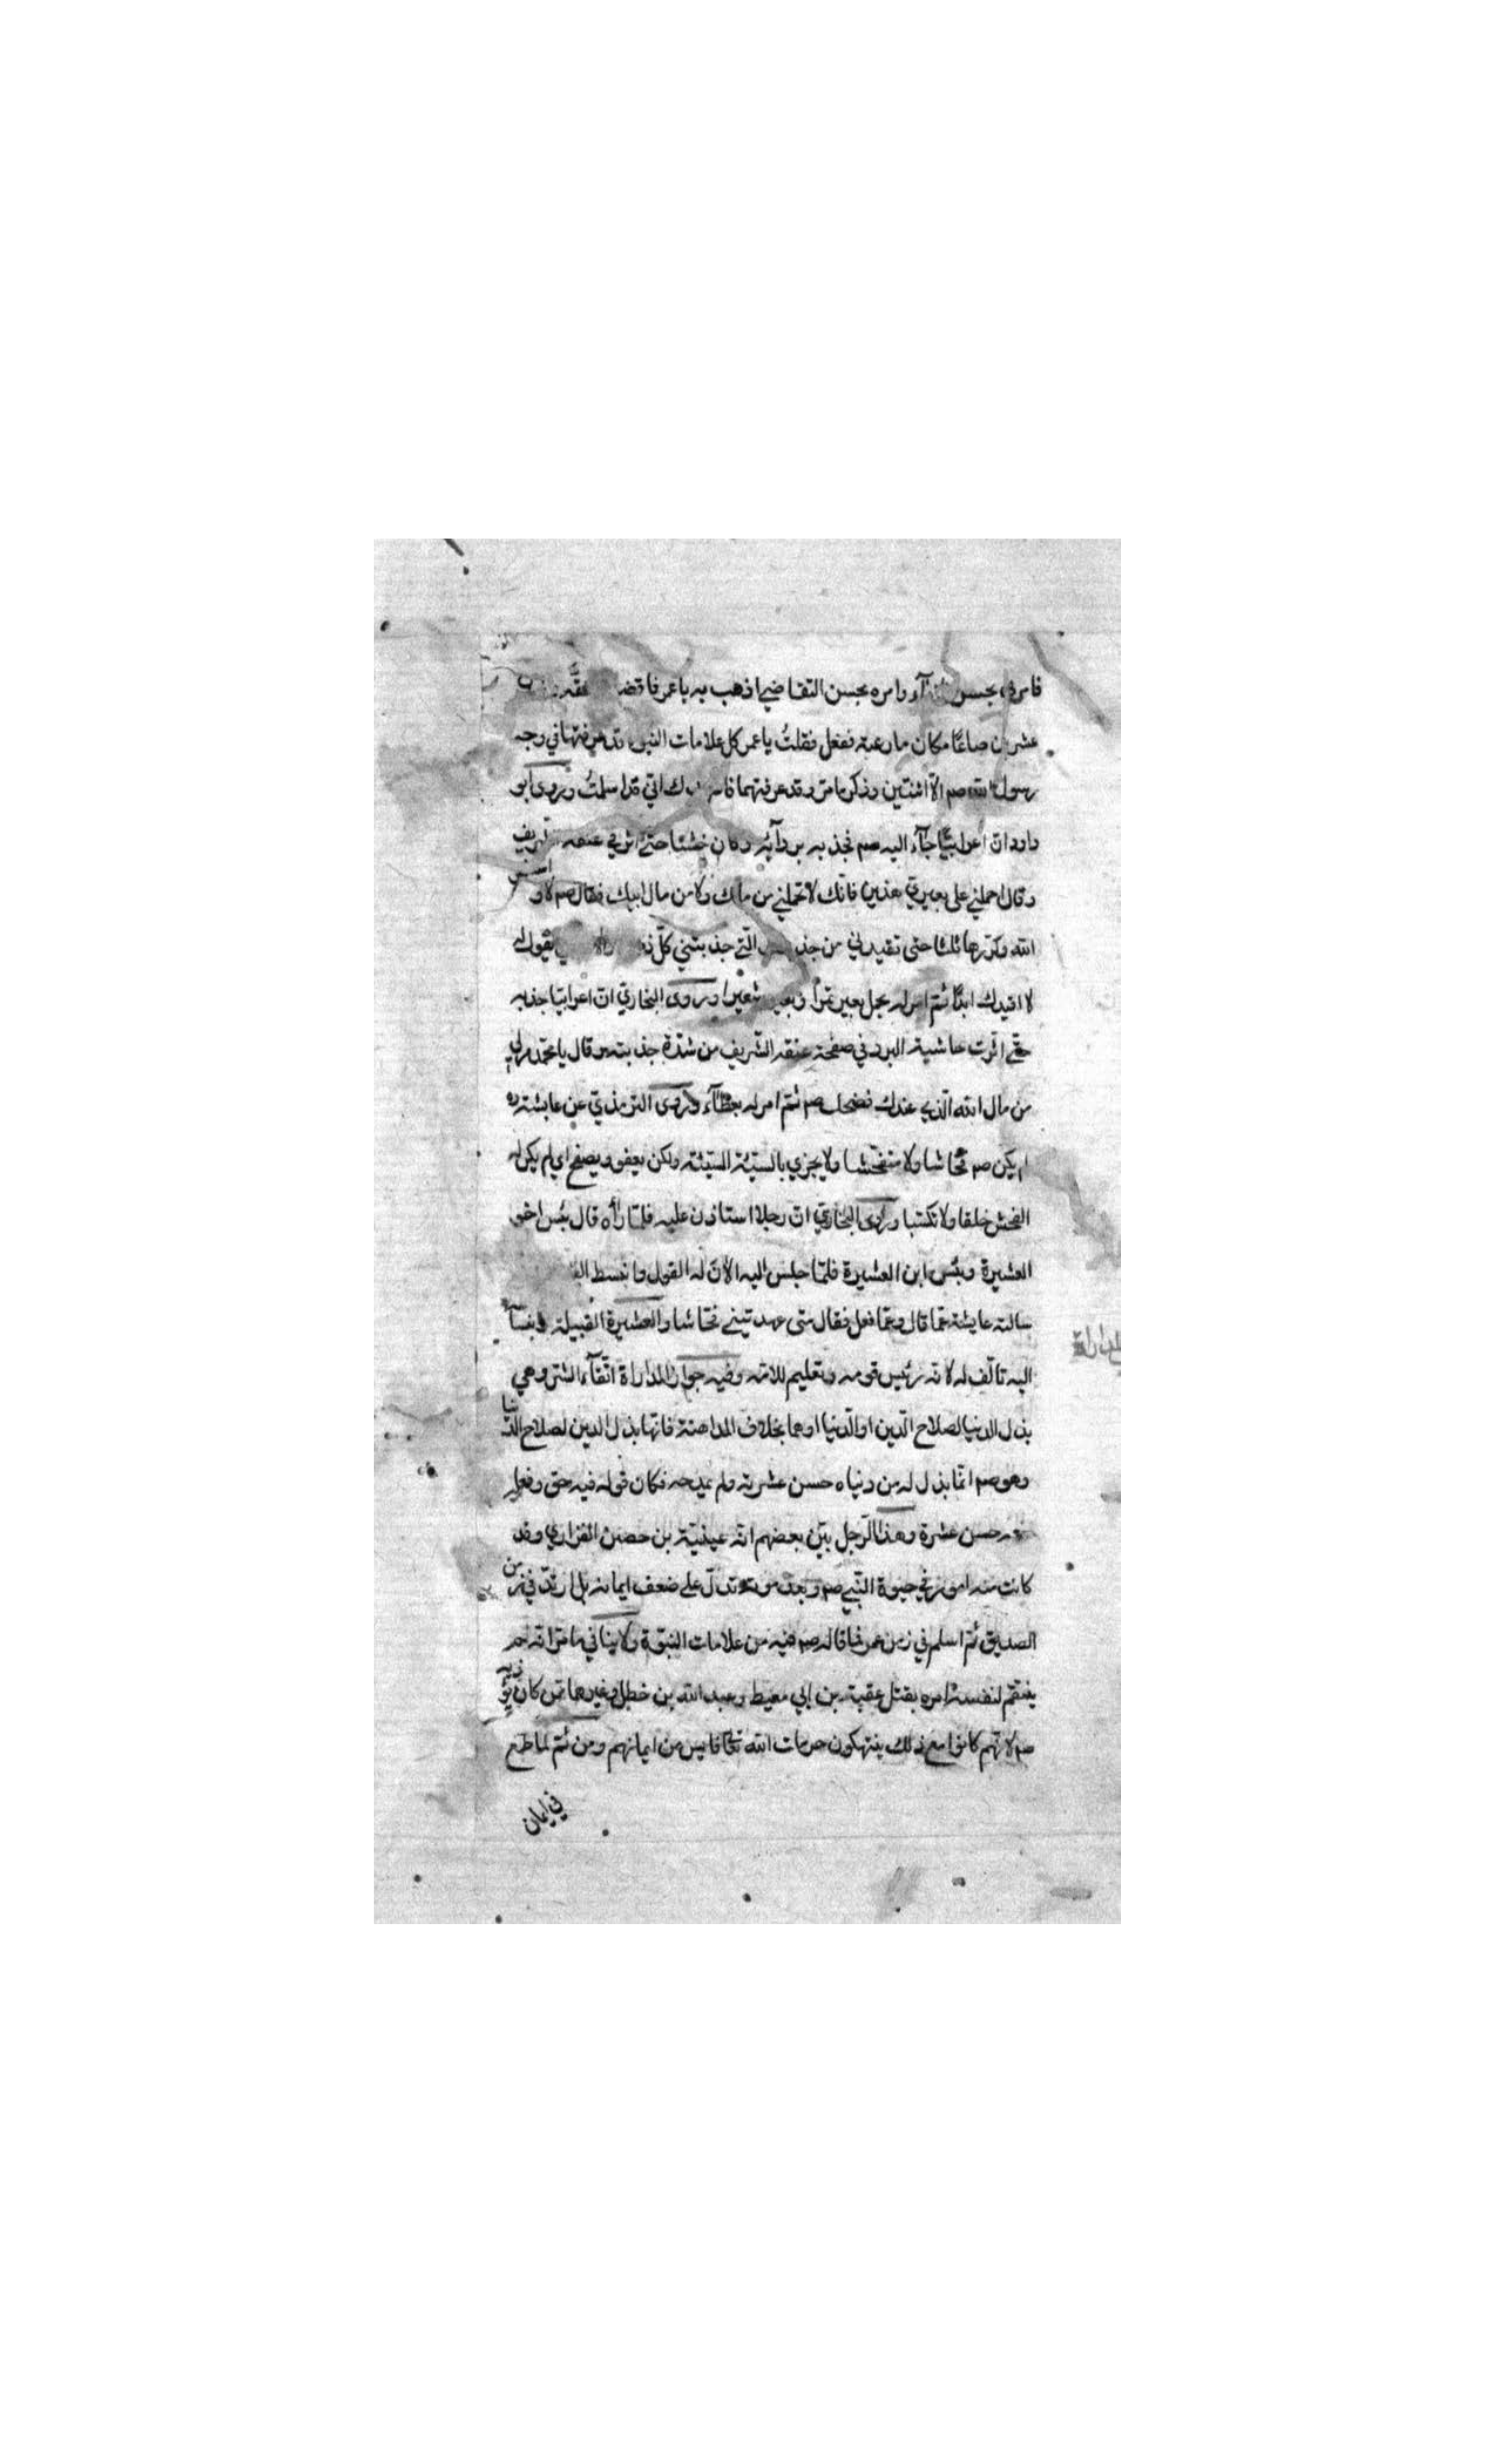 بحسن وامره بحسن التقاضي اذهب به يا عمر فاقضه حقه
عشرين صاعًا مكان ما رعته ففعل فقلتُ يا عمر كل علامات النبوة قد عرفتها في وجه
رسول الله صم الّا اثنتين وذكر ما مرّ وقد عرفتهما اني قد اسلمتُ وروى ابو
داود انّ اعرابيًّا جآء اليه صم فجذبه بردآئه وكان خشنا حتى اثر في عنقه
وقال احملني على بعيريّ هذين فانّك لا تحملني من مالك ولا من مال ابيك فقال صم لا و
الله وكرّرها ثلثا حتى تقيدني من الّتي جذبتني كلّ يقول له
لا اقيدك ابدًا ثمّ امر له بحمل بعير تمرًا وبعير شعيرا وروى البخاريّ انّ اعرابيّا جذبه
حتّى اثّرت حاشية البرد في صفحة عنقه الشّريف من شدّة جذبته وقال يا محمّد مر لي
من مال الله الّذي عندك فضحك صم ثمّ امر له بعطآء وروى الترمذيّ عن عايشة رض
لم يكن صم فحّاشا ولا متفحّشا ولا يجزي بالسيّئة السيّئة ولكن يعفو ويصفح اي لم يكن له
الفحش خلقا ولا تكسّبا وروى البخاريّ انّ رجلا استاذن عليه فلمّا رأه قال بئس اخو
العشيرة وبئس ابن العشيرة فلمّا جلس اليه الان له القول وانبسط
سالته عايشة عمّا قال وعمّا فعل فقال متى عهدتيني فحّاشا والعشيرة القبيلة
اليه تالّف له لانّه رئيس قومه وتعليم للامّه وفيه جواز المداراة اتّقآء الشّر وهي
بذل الدنيا لصلاح الّدين او الّدنيا او هما بخلاف المداهنة فانّها بذل الدين لصلاح الدّنيا
وهو صم انّما بذل له من دنياه حسن عشرته ولم يمدحه فكان قوله فيه حق وفعله
معه حسن عشرة وهذا الرّجل بيّن بعضهم انّه عيينة بن حصن الفزاري وقد
كانت منه امور في حيوة النّبي صم وبعد موته تدلّ على ضعف ايمانه بل ارتدّ في زمن
الصديق ثمّ اسلم في زمن عمر فما قاله صم فيه من علامات النبوّة ولا ينافي ما مرّ انّه لم
ينتقم لنفسه امره بقتل عقبة بن ابي معيط وعبد الله بن خطل وغيرهما ممّن كان يؤذيه
صم لانّهم كانوا مع ذلك ينتهكون حرمات الله تعالى فايس من ايمانهم ومن ثمّ لما طمع
في ايمان